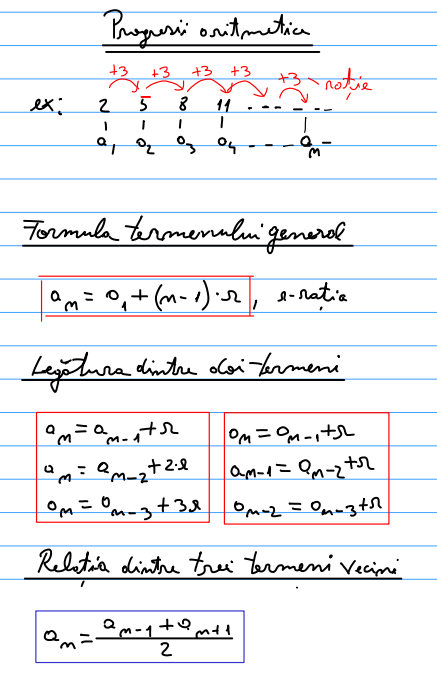 Progresii aritmetice
+3 +3 +3 +3 +3 rație
ex: 2 5 8 11 - - - - - -
a₁ a₂ a₃ a₄ - - - - aₙ -
Formula termenului general
aₙ = a₁ + (n-1)·r, r-rația
Legătura dintre doi termeni
aₙ = aₙ₋₁ + r aₙ = aₙ₋₁ + r
aₙ = aₙ₋₂ + 2·r aₙ₋₁ = aₙ₋₂ + r
aₙ = aₙ₋₃ + 3r aₙ₋₂ = aₙ₋₃ + r
Relația dintre trei termeni vecini
aₙ = (aₙ₋₁ + aₙ₊₁)/2